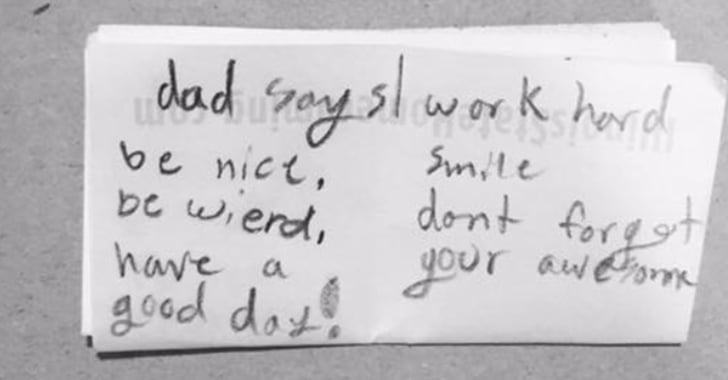 dad says
be nice,
be wierd,
have a
good day!
work hard
smile
dont forget
your awesome